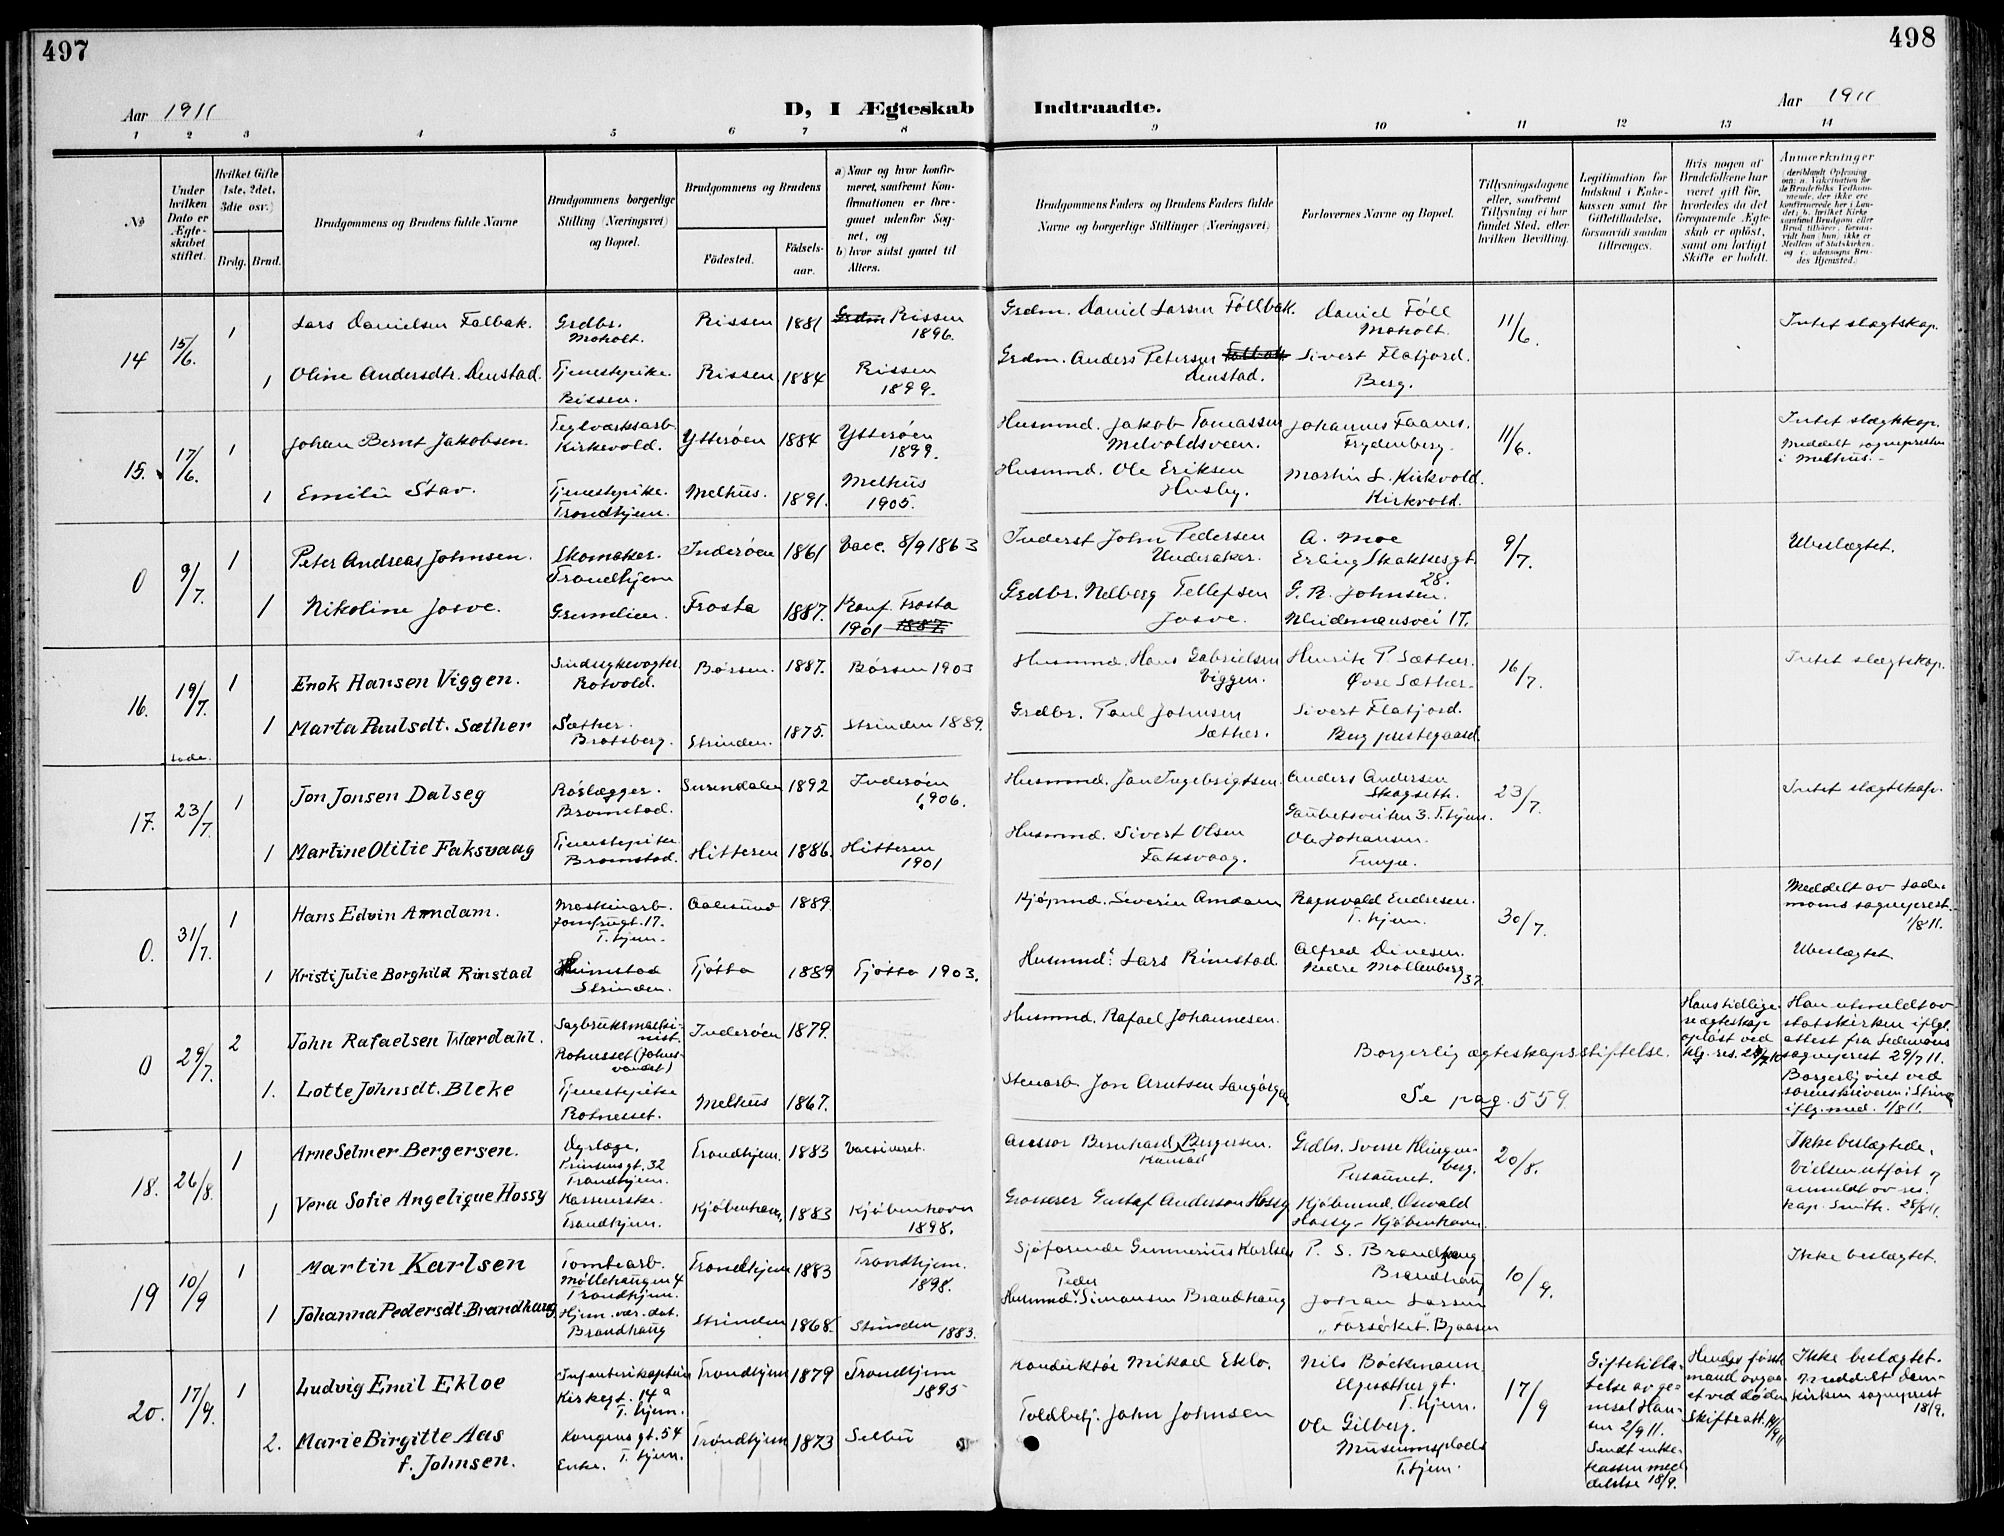 497
498
Aar 1911
D, I Ægteskab
Indtraadte.
Aar 1911
1 2 3 4 5 6 7 8
9 10 11 12 13 14
No
Under hvilken Dato er Ægteskabet stiftet.
Hvilket Gifte (1ste, 2det, 3die osv.)
Brdg. Brud.
Brudgommens og Brudens fulde Navne
Brudgommens borgerlige Stilling (Næringsvei) og Bopæl.
Brudgommens og Brudens
Fødested.
Fødselsaar.
a) Naar og hvor konfirmeret, saafremt Konfirmationen er foregaaet udenfor Sognet, og
b) hvor sidst gaaet til Alters.
Brudgommens Faders og Brudens Faders fulde Navne og borgerlige Stillinger (Næringsvei)
Forlovernes Navne og Bopæl.
Tillysningsdagene eller, saafremt Tillysning ei har fundet Sted, efter hvilken Bevilling.
Legitimation for Indskud i Enkekassen samt for Giftetilladelse, forsaavidt saadan tiltrænges.
Hvis nogen af Brudefolkene har været gift før, hvorledes da det foregaaende Ægteskab er opløst, samt om lovligt Skifte er holdt.
Anmerkninger
14 15/6. 1 Lars Danielsen Falbak. Grdbr. Moholt. Rissen 1881 Rissen 1896.
Grdm. Daniel Larsen Föllbak. Daniel Föll Moholt. 11/6. Intet slægtskap.
1 Oline Andersdtr. Denstad. Tjenestepike. Rissen. Rissen 1884 Rissen 1899.
Grdm. Anders Petersen Denstad. Sivert Flatjord. Berg.
15. 17/6. 1 Johan Bernt Jakobsen. Teglverksarb. Kirkevold. Ytterøen 1884 Ytterøen 1899.
Husmd. Jakob Tomassen Johannes Faanes. Frydenberg. 11/6. Intet slægtskap. Meddelt sognepresten i Melhus.
1 Emilie Stav. Tjenestepike. Trondhjem. Melhus. 1891. Melhus 1905.
Husmd. Ole Eriksen Husby. Martin L. Kirkvold. Kirkvold.
0 9/7. 1 Peter Andreas Johnsen. Skomaker. Trondhjem Inderøen 1861 Vacc. 8/9 1863
Inderst John Pedersen Underaker. A. Moe Erling Skakkesgt. 28. 9/7. Ubeslægtet.
1 Nikoline Josve. Gremlien. Frosta 1887. Konf. Frosta 1901 1887.
Grdbr. Nelberg Tellefsen Josve. G. R. Johnsen. Weidemansvei 17.
16. 19/7. 1 Enok Hansen Viggen. Sindsykevogter. Rotvold. Børsen. 1887. Børsen 1903
Husmd. Hans Gabrielsen Viggen. Henrik P. Sæther. Øvre Sæther. 16/7. Intet slægtskap.
1 Marta Paulsdt. Sæther Sæther. Bratsberg. Strinden. 1875. Strinden 1889.
Grdbr. Paul Johnsen Sæther. Sivert Flatjord. Berg prestegaard.
17. 23/7. 1 Jon Jonsen Dalseg Rørlægger. Bromstad. Surendalen 1892 Inderøen 1906.
Husmd. Jon Ingebrigtsen. Anders Andersen Skogseth. Gaubetsveiten 3. T.hjem. 23/7. Intet slægtskap.
1 Martine Otilie Faksvaag Tjenestepike Bromstad. Hitteren 1886. Hitteren 1901
Husmd. Sivert Olsen Faksvaag. Ole Johansen.
0. 31/7. 1 Hans Edvin Amdam. Maskinarb. Jomfrugt. 17. T.hjem. Aalesund 1889.
Kjøpmd. Severin Amdam Ragnvald Endresen. T.hjem. 30/7. Meddelt av Lademoens sogneprest. 1/8 11.
1 Kristi Julie Borghild Rinstad Strinden. Tjøtta 1889 Tjøtta 1903.
Husmd. Lars Rinstad Alfred Dinesen. Nedre Møllenberg 37. Ubeslægtet
0 29/7. 2 John Rafaelsen Wærdahl. Sagbruksmaskinist. Rotnesset Inderøen 1879.
Husmd. Rafael Johannesen. Borgerlig ægteskapsstiftelse. Hans tidligere ægteskap opløst ved kg. res. Han utmeldt av statskirken iflg. attest fra Lademoens sogneprest 29/7 11. Borgerlig viet ved sorenskriveren i Strinda iflg. med. 1/8 11.
1. Lotte Johnsdt. Bleke Tjenestepike Rotnesset. Melhus 1867.
Stenarb. Jon Arntsen Langørgen Se pag. 559
18. 26/8. 1 Arne Selmer Bergersen. Dyrlæge. Prinsensgt. 32 Trondhjem. Trondhjem. 1883 Vaccineret.
Assessor Bernhard Kansad Bergersen. Grdbr. Sverre Klingenberg. Persaunet. 20/8. Ikke beslægtede. Vielsen utført & anmeldt av res. kap. Smith. 28/8 11.
1 Vera Sofie Angelique Hossy Kassererske. Trondhjem. Kjøbenhavn. 1883 Kjøbenhavn 1898.
Grosserer Gustaf Anderson Hossy Kjøbmd. Osvald Hossy - Kjøbenhavn.
19 10/9 1 Martin Karlsen Tomtearb. Møllehaugen 4 Trondhjem. Trondhjem 1883 Trondhjem. 1898.
Sjøfarende Gunnerius Karlsen P. S. Brandhaug Brandhaug 10/9. Ikke beslægtet.
1 Johanna Pedersdt. Brandhaug Hjem. vær. dat. Brandhaug Strinden 1868. Strinden 1883.
Husmd. Peder Simonsen Brandhaug Johan Larsen "Forsøket". Bjaasen
20. 17/9. 1 Ludvig Emil Ekloe Infanterikaptein Kirkegt. 14a T.hjem. Trondhjem 1879 Trondhjem 1895
Konduktør Mikael Eklo. Nils Böckmann Elgesæther gt. T.hjem. 17/9 Giftetilladelse av general Hansen 2/9 11. Sendt enkekassen meddelelse 18/9. Hendes første mand avgaaet ved døden Skifteatt. 14/9 11 Ikke beslægtet. Meddelt Domkirken sogneprest 18/9.
2. Marie Birgitte Aas f. Johnsen. Kongensgt. 54 T.hjem. Enke. Trondhjem 1873 Selbu
Toldbetj. John Johnsen Ole Gilberg. Museumsplads T.hjem.